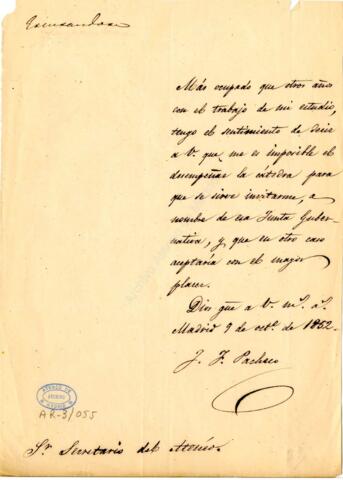 Excusandose
Más ocupado que otros años
con el trabajo de mi estudio,
tengo el sentimiento de decir
a V. que me es imposible el
desempeñar la cátedra para
que se sirve invitarme, a
nombre de esa Junta Guber-
nativa, y que en otro caso
aceptaría con el mayor
placer.
Dios gue a V. ms. as.
Madrid 9 de oct.e de 1852.
J. F. Pacheco
ATENEO DE
MADRID
AR-3/055
Sr. Secretario del Ateneo.